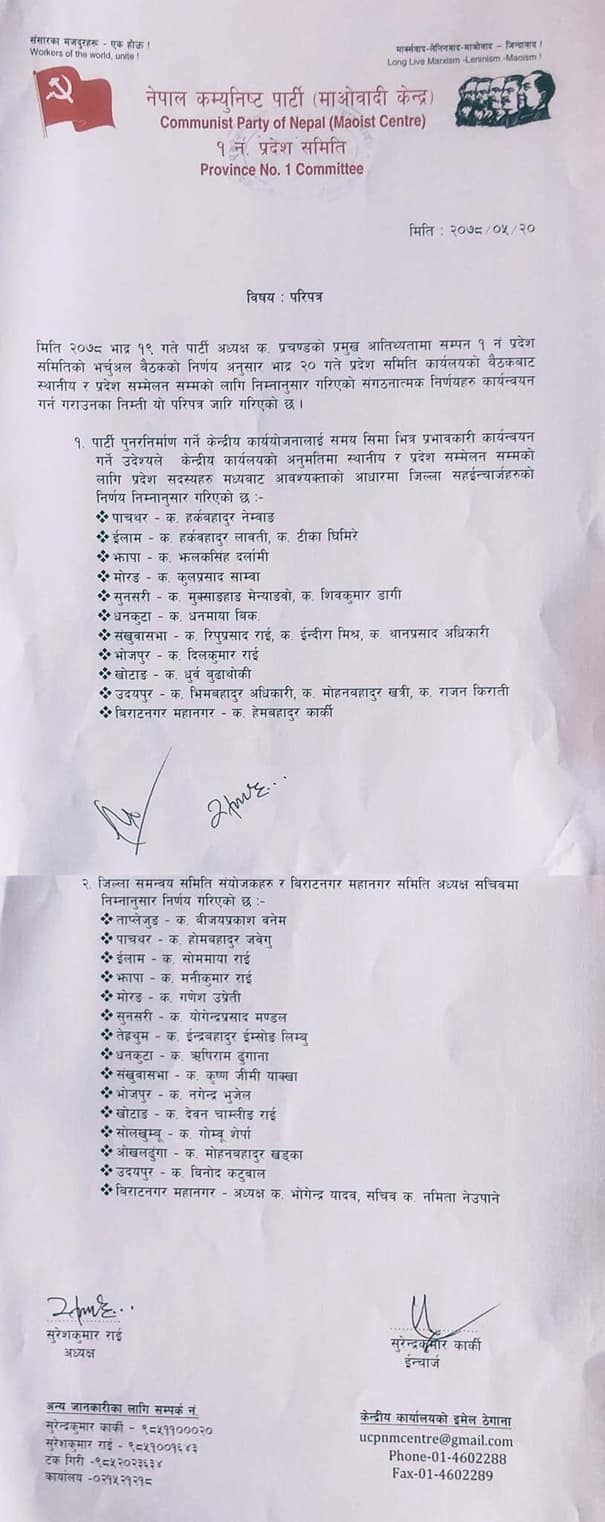 संसारका मजदुरहरू - एक होऊ !
Workers of the world, unite !
मार्क्सवाद-लेनिनवाद-माओवाद - जिन्दावाद !
Long Live Marxism -Leninism -Maoism !
नेपाल कम्युनिष्ट पार्टी (माओवादी केन्द्र)
Communist Party of Nepal (Maoist Centre)
१ नं. प्रदेश समिति
Province No. 1 Committee
मिति : २०७८/०५/२०
विषय : परिपत्र
मिति २०७८ भाद्र १९ गते पार्टी अध्यक्ष क. प्रचण्डको प्रमुख आतिथ्यतामा सम्पन १ नं प्रदेश
समितिको भर्चुअल बैठकको निर्णय अनुसार भाद्र २० गते प्रदेश समिति कार्यलयको बैठकबाट
स्थानीय र प्रदेश सम्मेलन सम्मको लागि निम्नानुसार गरिएको संगठनात्मक निर्णयहरु कार्यन्वयन
गर्न गराउनका निम्ती यो परिपत्र जारि गरिएको छ ।
१. पार्टी पुनरनिर्माण गर्ने केन्द्रीय कार्ययोजनालाई समय सिमा भित्र प्रभावकारी कार्यन्वयन
गर्ने उदेश्यले केन्द्रीय कार्यलयको अनुमतिमा स्थानीय र प्रदेश सम्मेलन सम्मको
लागि प्रदेश सदस्यहरु मध्यबाट आवश्यक्ताको आधारमा जिल्ला सहईन्चार्जहरुको
निर्णय निम्नानुसार गरिएको छ :-
❖ पाचथर - क. हर्कबहादुर नेम्वाङ
❖ ईलाम - क. हर्कबहादुर लावती, क. टीका घिमिरे
❖ झापा - क. झलकसिंह दर्लामी
❖ मोरङ - क. कुलप्रसाद साम्बा
❖ सुनसरी - क. मुक्साङहाङ मेन्याङवो, क. शिवकुमार डागी
❖ धनकुटा - क. धनमाया बिक.
❖ संखुवासभा - क. रिपुप्रसाद राई, क. ईन्दीरा मिश्र, क. थानप्रसाद अधिकारी
❖ भोजपुर - क. दिलकुमार राई
❖ खोटाङ - क. धुर्व बुढाथोकी
❖ उदयपुर - क. भिमबहादुर अधिकारी, क. मोहनबहादुर खत्री, क. राजन किराती
❖ बिराटनगर महानगर - क. हेमबहादुर कार्की
२. जिल्ला समन्वय समिति संयोजकहरु र बिराटनगर महानगर समिति अध्यक्ष सचिवमा
निम्नानुसार निर्णय गरिएको छ :-
❖ ताप्लेजुङ - क. बीजयप्रकाश बनेम
❖ पाचथर - क. होमबहादुर जबेगु
❖ ईलाम - क. सोममाया राई
❖ झापा - क. मनीकुमार राई
❖ मोरङ - क. गणेश उप्रेती
❖ सुनसरी - क. योगेन्द्रप्रसाद मण्डल
❖ तेह्रथुम - क. ईन्द्रबहादुर ईम्सोङ लिम्बु
❖ धनकुटा - क. ऋषिराम ढुंगाना
❖ संखुवासभा - क. कृष्ण जीमी याक्खा
❖ भोजपुर - क. नगेन्द्र भुजेल
❖ खोटाङ - क. देवन चाम्लीङ राई
❖ सोलखुम्बू - क. गोम्बू शेर्पा
❖ ओखलढुंगा - क. मोहनबहादुर खड्का
❖ उदयपुर - क. बिनोद कटुवाल
❖ बिराटनगर महानगर - अध्यक्ष क. भोगेन्द्र यादव, सचिव क. नमिता नेउपाने
सुरेशकुमार राई
अध्यक्ष
सुरेन्द्रकुमार कार्की
ईन्चार्ज
अन्य जानकारीका लागि सम्पर्क नं.
सुरेन्द्रकुमार कार्की - ९८५११०००२०
सुरेशकुमार राई - ९८५१००१६४३
टंक गिरी -९८५२०२३६३४
कार्यालय -०२१५२१२१८
केन्द्रीय कार्यालयको इमेल ठेगाना
ucpnmcentre@gmail.com
Phone-01-4602288
Fax-01-4602289